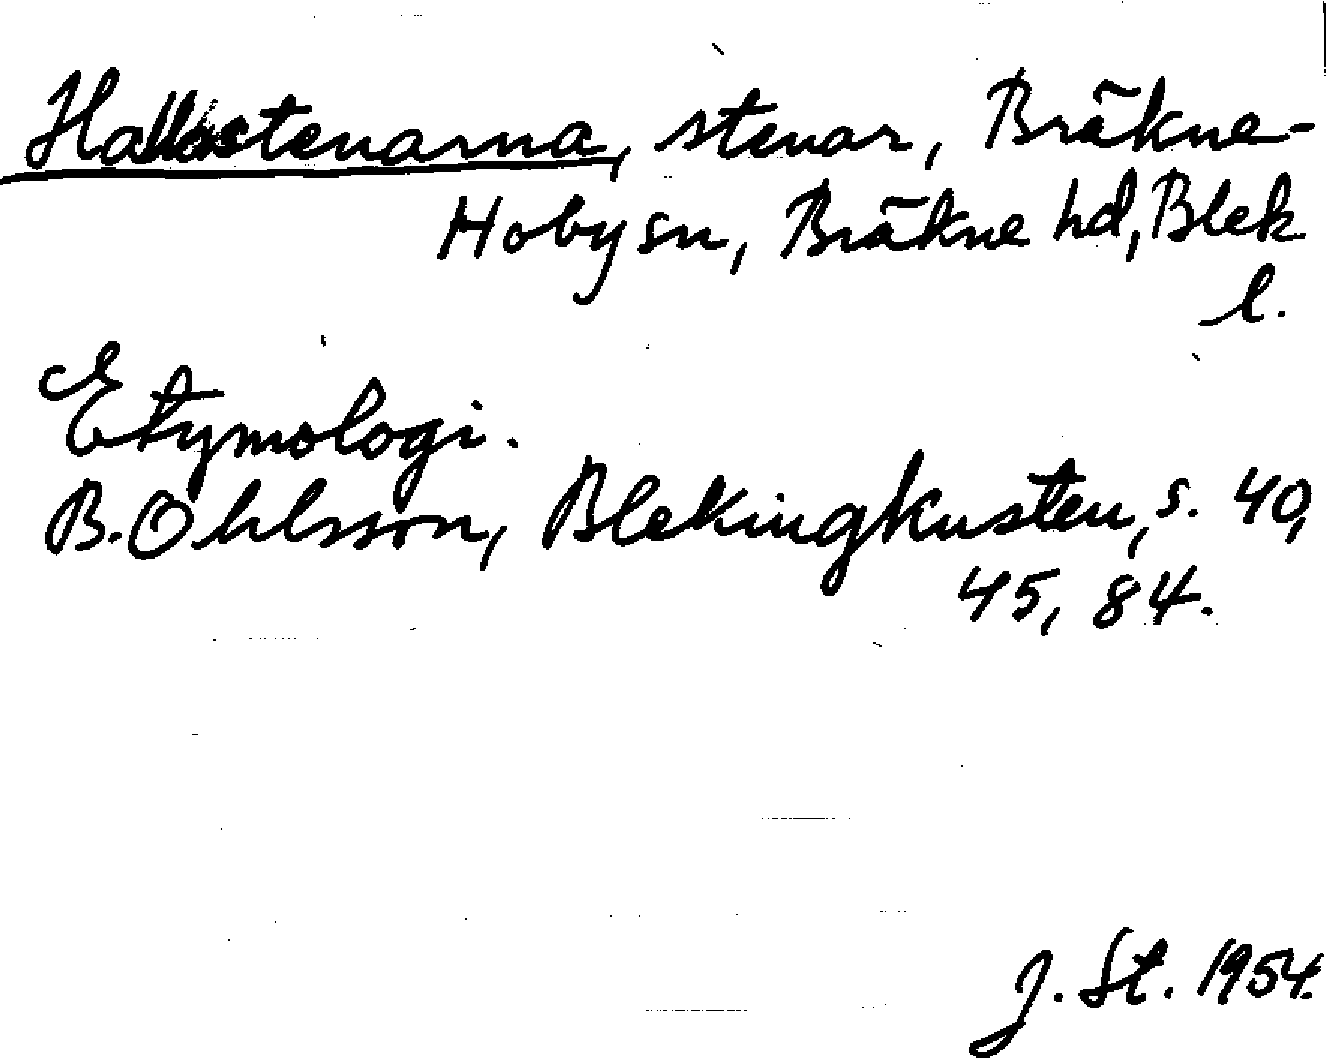 Hallastenarna, stenar, Bräkne-
Hoby sn, Bräkne hd, Blek
l.
Etymologi.
B. Ohlsson, Blekingkusten, s. 40,
45, 84.
J. St. 1954.